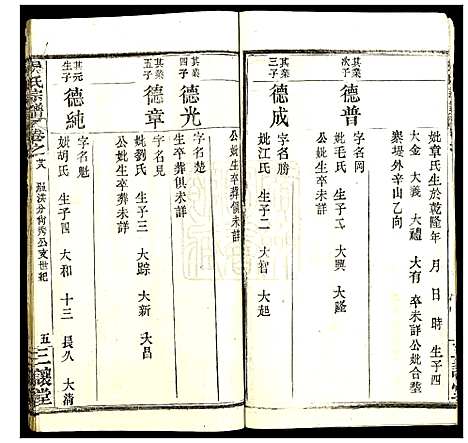 妣章氏生於乾隆年 月 日 時 生子四
大金 大義 大禮 大有 卒未詳公妣合塟
塴堪外辛山乙向
其業次子
德普
字名岡
妣毛氏 生子二 大興 大隆
公妣生卒塟未詳
其業三子
德成
字名勝
妣江氏 生子二 大智 大起
公妣生卒塟俱未詳
其業四子
德光
字名楚
生卒塟俱未詳
其業五子
德章
字名見
妣劉氏 生子三 大踪 大新 大昌
公妣生卒塟未詳
其元生子
德純
字名魁
妣胡氏 生子四 大和 十三 長久 大清
吳氏宗譜
卷之
五
三讓堂